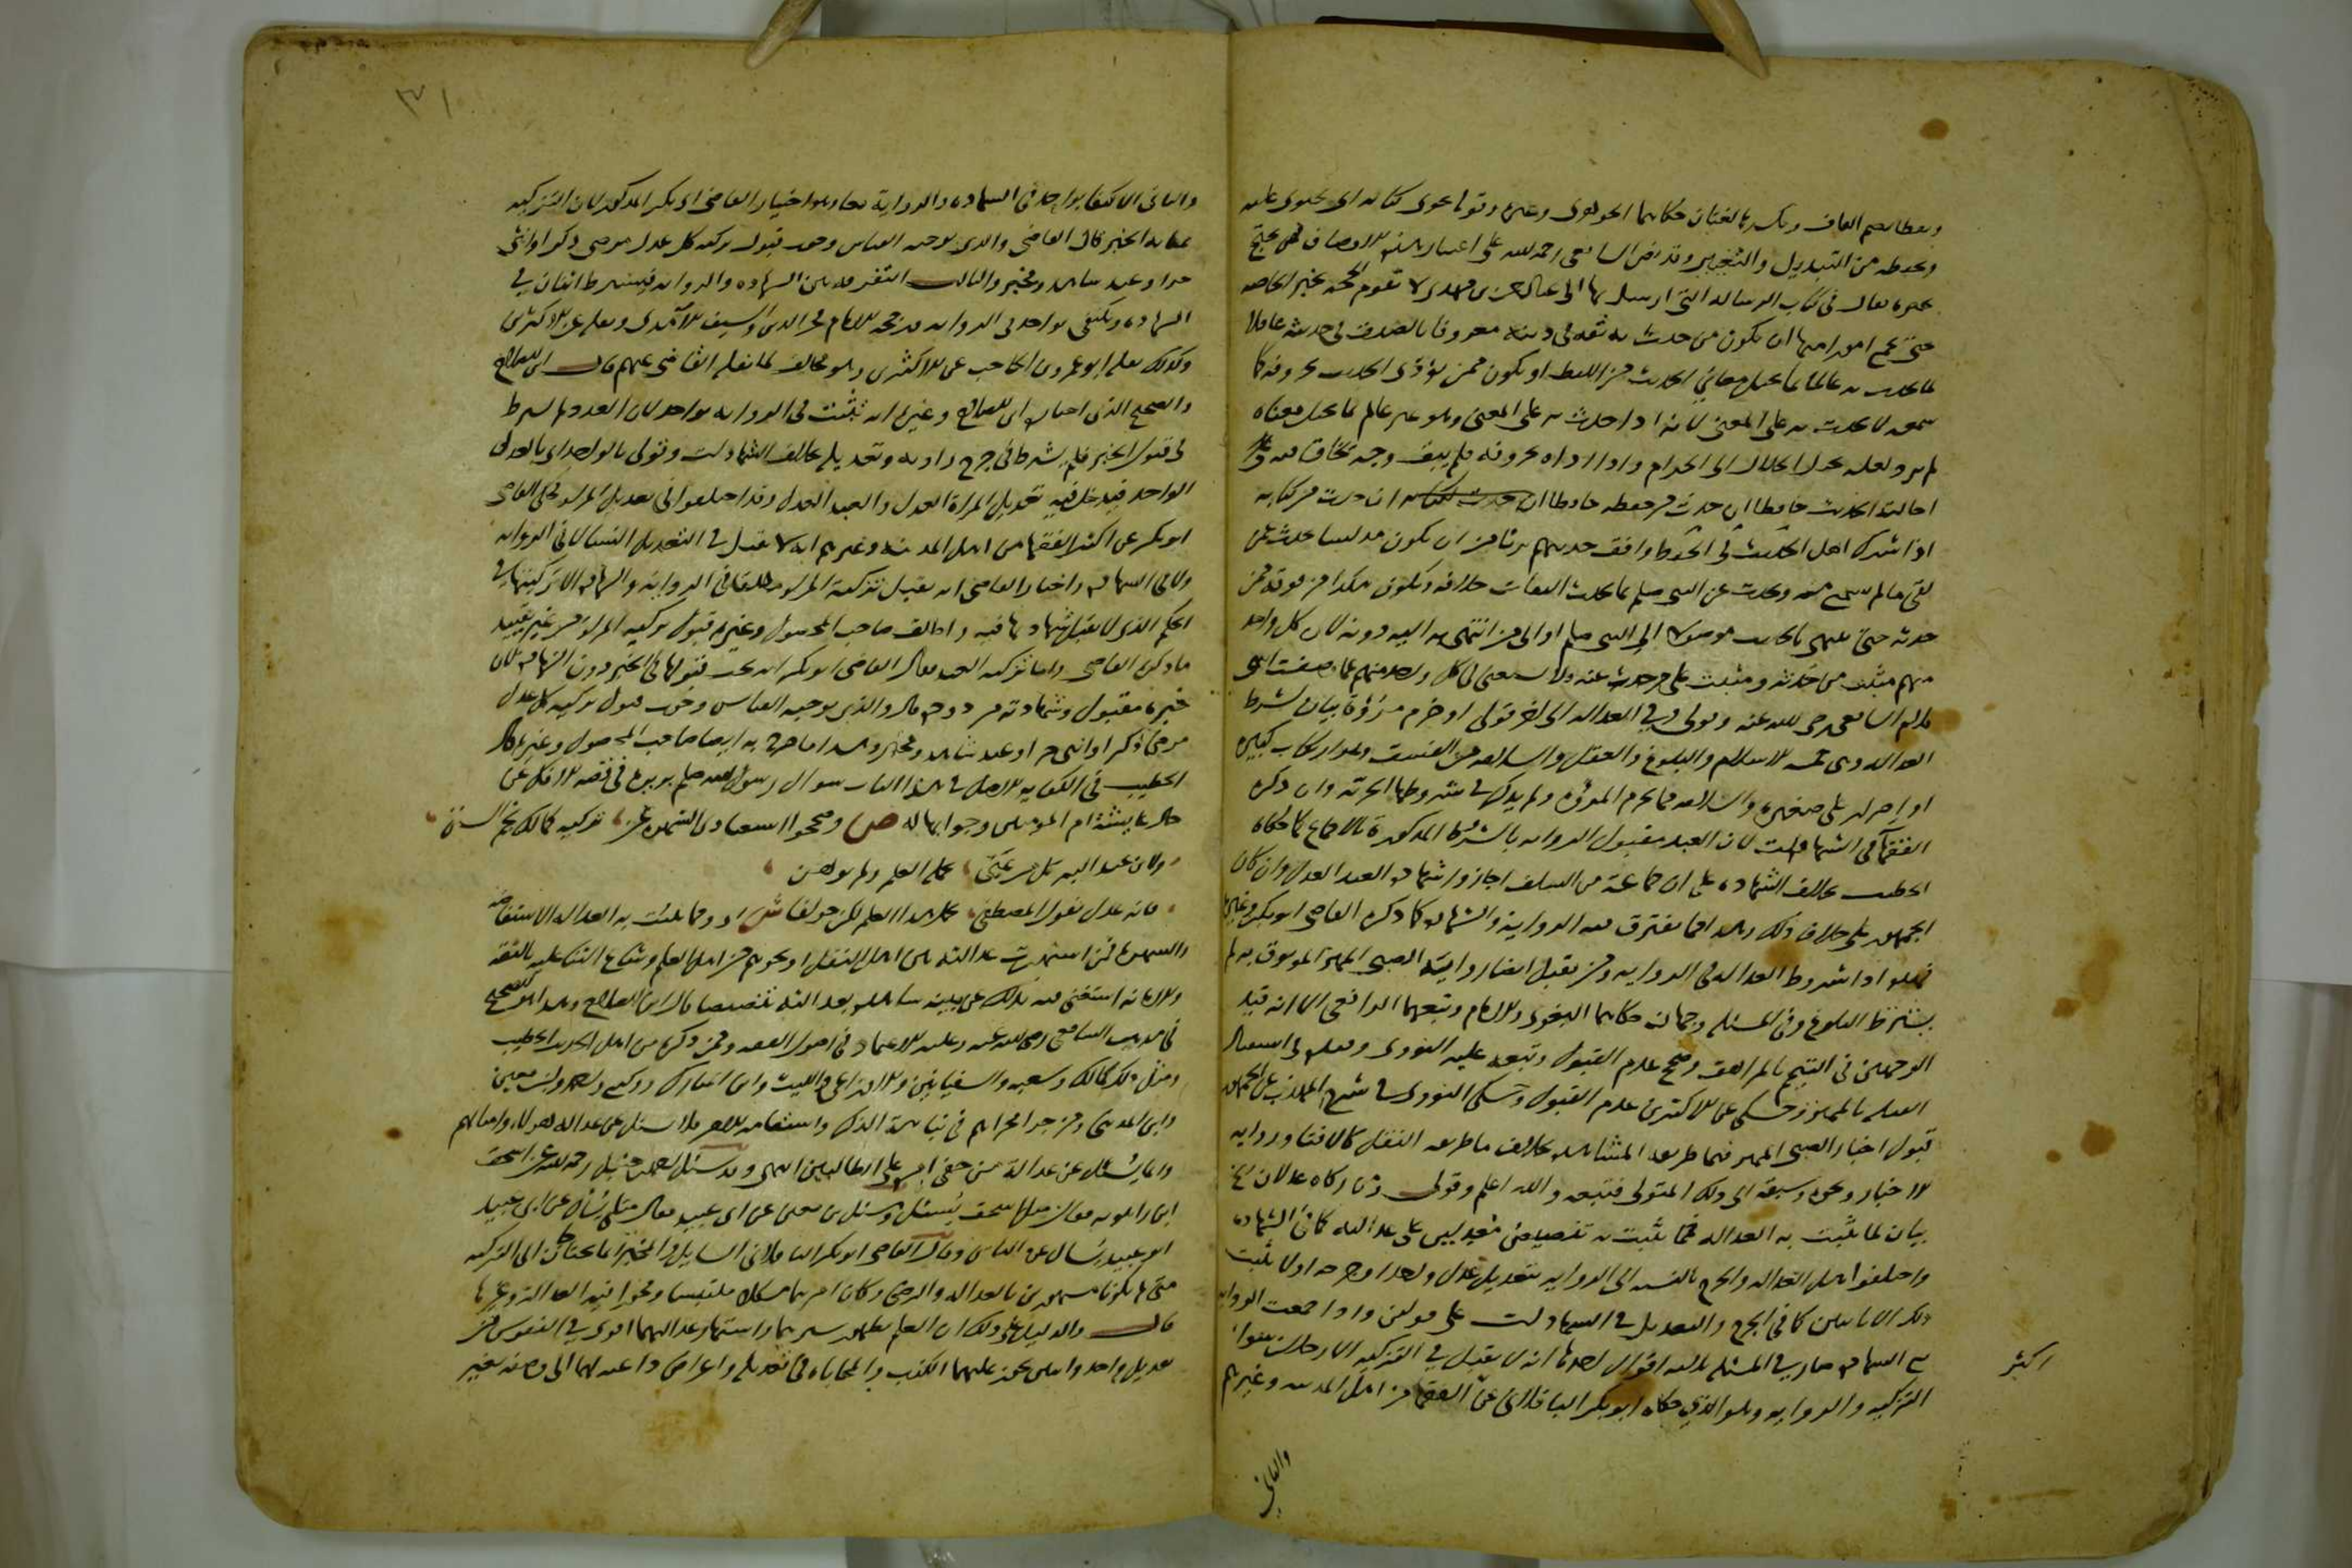 وبعطابضم القاف وبكسرها لغتان حكاهما الجوهري وغيره وقولي يحوي كتابه اي يحتوي عليه
ويحفظه من التبديل والتغيير وقد نص الشافعي رحمه الله على اعتبار هذه الاوصاف فمن يحتج
بخبره فقال في كتاب الرسالة التي ارسل بها الى عبد الرحمن بن مهدي لا تقوم الحجة بخبر الخاصة
حتى يجمع امورا منها ان يكون من حدث به ثقة في دينه معروفا بالصدق في حديثه عاقلا
لما يحدث به عالما بما يحيل معاني الحديث من اللفظ او يكون ممن يؤدي الحديث بحروفه كما
سمعه لا يحدث به على المعنى لانه اذا حدث به على المعنى وهو غير عالم بما يحيل معناه
لم يدر لعله يحيل الحلال الى الحرام واذا اداه بحروفه فلم يبق وجه يخاف فيه
احالته الحديث حافظا ان حدث من حفظه حافظا ان حدث من كتابه
اذا شرك اهل الحديث في الحديث وافق حديثهم بريئا من ان يكون مدلسا يحدث عن
لقي ما لم يسمع منه ويحدث عن النبي صلعم بما يحدث الثقات خلافه ويكون هكذا من فوقه ممن
حدثه حتى ينتهي بالحديث موصولا الى النبي صلعم او الى من انتهى به اليه دونه لان كل واحد
منهم مثبت من حدثه ومثبت على من حدث عنه ولا يستغنى في كل واحد منهم عما وصفت انتهى
كلام الشافعي رضي الله عنه وقولي وفي العدالة الى اخر قولي او خرم مروءة بيان لشرط
العدالة وهي خمسة الاسلام والبلوغ والعقل والسلامة من الفسق وهو ارتكاب كبيرة
او اصرار على صغيرة والسلامة مما يخرم المروءة ولم يذكر في شروطها الحرية وان ذكره
الفقهاء في الشهادات لان العبد مقبول الرواية بالشروط المذكورة بالاجماع كما حكاه
الخطيب بخلاف الشهادة على ان جماعة من السلف اجازوا شهادة العبد العدل وان كان
الجمهور على خلاف ذلك وهذا مما تفترق فيه الرواية والشهادة كما ذكره القاضي ابو بكر وغيره
بشترط البلوغ وفي المسئلة وجهان حكاهما البغوي والامام وتبعهما الرافعي الا انه قيد
الوجهين في التيمم بالمراهق وصحح عدم القبول وتبعه عليه النووي وقيده في استقبال
القبلة بالمميز وحكى عن الاكثرين عدم القبول وحكى النووي في شرح المهذب عن الجمهور
قبول اخبار الصبي المميز فيما طريقه المشاهدة بخلاف ما طريقه النقل كالافتا ورواية
الاخبار ونحوه وسبقه الى ذلك المتولي فتبعه والله اعلم وقولي ومن زكاه عدلان الخ
بيان لما تثبت به العدالة فمما تثبت به تنصيص معدلين على عدالته كما في الشهادة
واختلفوا هل العدالة والجرح بالنسبة الى الرواية بتعديل عدل واحد او جرحه او لا يثبت
ذلك الا باثنين كما في الجرح والتعديل في الشهادات على قولين واذا جمعت الرواية
مع الشهادة صار في المسئلة ثلاثة اقوال احدها انه لا يقبل في التزكية الا رجلان سواء
التزكية والرواية وهو الذي حكاه ابو بكر الباقلاني عن الفقها من اهل المدينة وغيرهم
اكثر
والثاني
٣١
والثاني الاكتفا بواحد في الشهادة والرواية معا وهو اختيار القاضي ابي بكر المذكور لان التزكية
بمثابة الخبر قال القاضي والذي يوجبه القياس وجوب قبول تزكية كل عدل مرضي ذكر او انثى
حر او عبد شاهد ومخبر والثالث التفرقة بين الشهادة والرواية فيشترط اثنان في
الشهادة ويكتفى بواحد في الرواية ورجحه الامام فخر الدين والسيف الآمدي ونقله عن الاكثرين
وكذلك نقله ابو عمرو بن الحاجب عن الاكثرين وهو مخالف لما نقله القاضي عنهم قال ابن الصلاح
والصحيح الذي اختاره ابن الصلاح وغيره انه تثبت في الرواية بواحد لان العدد لم يشترط
في قبول الخبر فلم يشترط في جرح راويه وتعديله بخلاف الشهادات وقولي بالواحد اي بالعدل
الواحد فيدخل فيه تعديل المراة العدل والعبد العدل وقد اختلفوا في تعديل المراة فحكى القاضي
ابو بكر عن اكثر الفقها من اهل المدينة وغيرهم انه لا يقبل في التعديل النسا لا في الرواية
ولا في الشهادة واختار القاضي انه يقبل تزكية المراة مطلقا في الرواية والشهادة الا تزكيتها في
الحكم الذي لا يقبل شهادتها فيه واطلق صاحب المحصول وغيره قبول تزكية المراة من غير تقييد
بما ذكره القاضي واما تزكية العبد فقال القاضي ابو بكر انه يجب قبولها في الخبر دون الشهادة لان
خبره مقبول وشهادته مردودة قال والذي يوجبه القياس وجوب قبول تزكية كل عدل
مرضي ذكر او انثى حر او عبد شاهد ومخبر وهذا ما صرح به ايضا صاحب المحصول وغيره قال
الخطيب في الكفاية الاصل في هذا الباب سؤال رسول الله صلعم بريرة في قصة الافك عن
حال عايشة ام المؤمنين وجوابها له ص وصححوا استغناء ذي الشهره عن، تزكيه كمالك نجم السنن
ولابن عبد البر كل من عني، بحمله العلم ولم يوهن
فانه عدل بقول المصطفى، يحمل هذا العلم لكن خولفا ش اي ومما تثبت به العدالة الاستفاضة
والشهرة فمن اشتهرت عدالته بين اهل النقل او نحوهم من اهل العلم وشاع الثنا عليه بالثقة
والامانة استغني فيه بذلك عن بينة شاهدة بعدالته تنصيصا قال ابن الصلاح وهذا هو الصحيح
في مذهب الشافعي رضي الله عنه وعليه الاعتماد في اصول الفقه وممن ذكره من اهل الحديث الخطيب
ومثل ذلك بمالك وشعبة والسفيانين والاوزاعي والليث وابن المبارك ووكيع واحمد وابن معين
وابن المديني ومن جرا مجراهم في نباهة الذكر واستقامة الامر فلا يسئل عن عدالة هؤلاء وامثالهم
وانما يسئل عن عدالة من خفي امره على الطالبين انتهى وقد سئل احمد بن حنبل رحمه الله عن اسحق
ابن راهويه فقال مثل اسحق يُسئل عنه وسئل ابن معين عن ابي عبيد فقال مثلي يسأل عن ابي عبيد
ابو عبيد يسأل عن الناس وقال القاضي ابو بكر الباقلاني الشاهد والمخبر انما يحتاجان الى التزكية
متى لم يكونا مشهورين بالعدالة والرضى وكان امرهما مشكلا ملتبسا ومجوزا فيه العدالة وغيرها
قال والدليل على ذلك ان العلم بظهور سرهما واشتهار عدالتهما اقوى في النفوس من
تعديل واحد واثنين يجوز عليهما الكذب والمحاباة في تعديله واغراض داعية لهما الى وصفه بغير